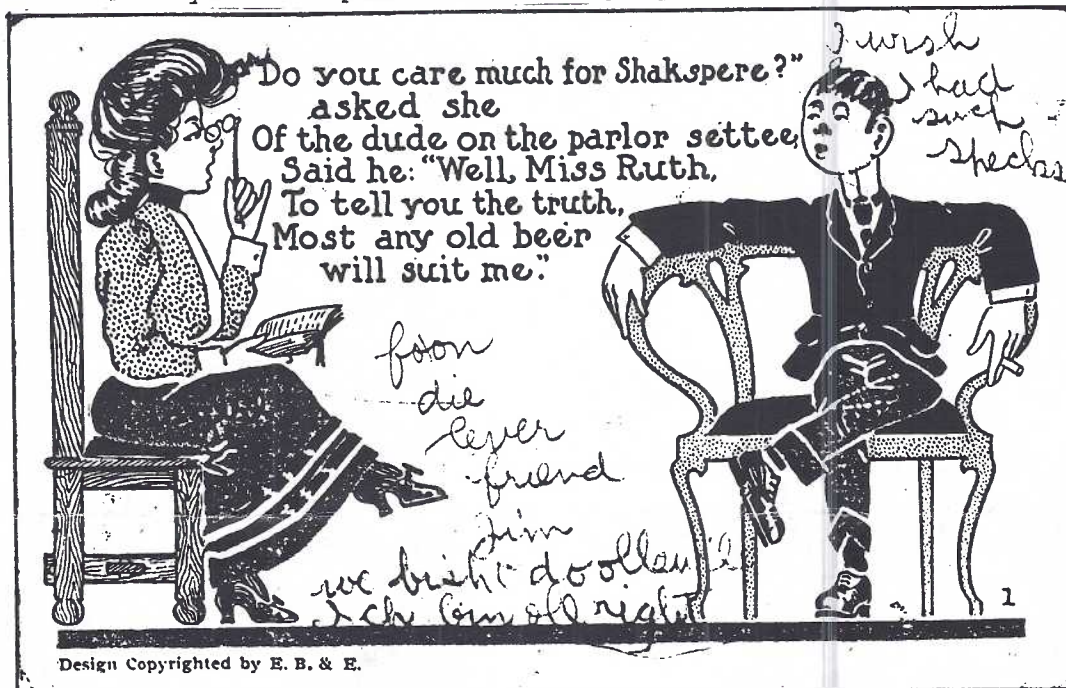 Do you care much for Shakspere?"
asked she
Of the dude on the parlor settee,
Said he: "Well, Miss Ruth,
To tell you the truth,
Most any old beer
will suit me."
I wish
I had
such
specks
foon
die
lever
friend
Jim
we bisht do ollau
Ich bin all right
1
Design Copyrighted by E. B. & E.